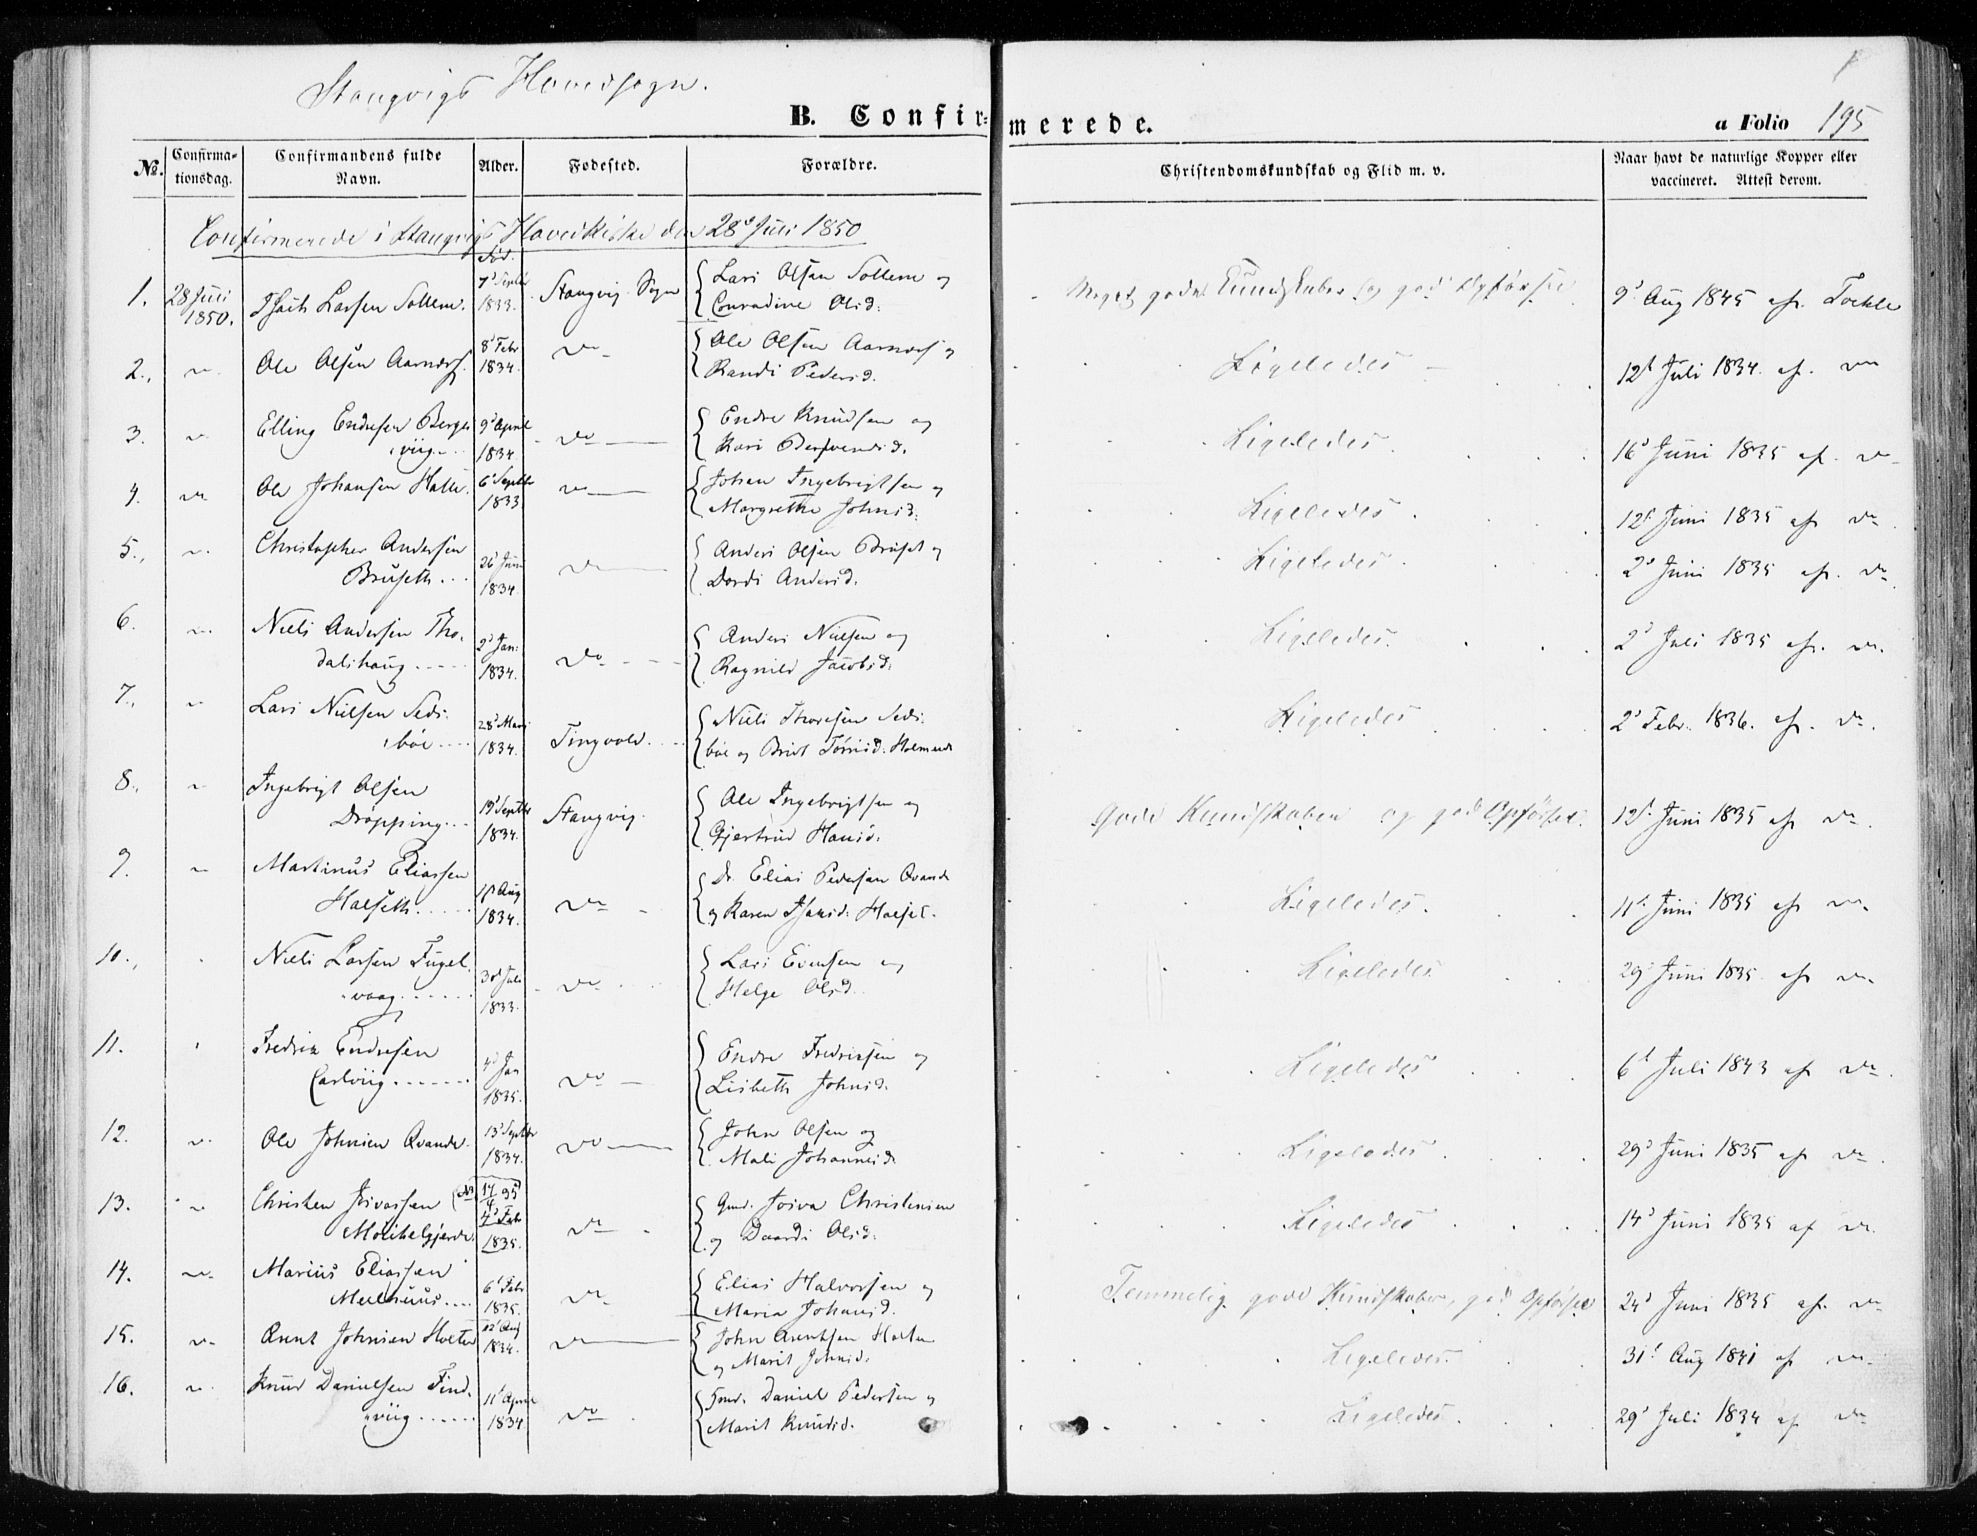 Stangvigs Hovedsogn.
B. Confirmerede.
a Folio 195
No.
Confirmationsdag.
Confirmandens fulde Navn.
Alder.
Fødested.
Forældre.
Christendomskundskab og Flid m. v.
Naar havt de naturlige Kopper eller vaccineret. Attest derom.
Confirmerede i Stangvigs Hovedkirke den 28de Juli 1850
1. 28 Juli 1850. Larsen Sollem. Fød. 7d Septbr 1833. Stangvig Sogn {Lars Olsen Sollem og Conradine Olsd: Meget gode Kundskaber og god Opførsel 9d Aug 1845 af.
2., " Ole Olsen Aarnæs. 8d Febr 1834. do {Ole Olsen Aarnæs og Randi Pedersd. Ligeledes 12t Juli 1834. af. do
3. " Elling Endresen Bergs viig 9d April 1834. do {Endre Knudsen og Kari Ligeledes. 16d Juni 1835 af. do
4. " Ole Johansen Halle. 6d Septbr 1833 do {Johan Ingebrigtsen og Margrethe Johnsd. Ligeledes. 12t Juni 1835 af do
5., " Christopher Andersen Bruseth... 26d 1834. do {Anders Olsen Bruset og Dordi Andersd. Ligeledes. 2d Juni 1835 af. do
6. " Niels Andersen Tho- dalshaug..... 2d Jan: 1834. do {Anders Nielsen og Ragnild Jacobsd: Ligeledes. 2d Juli 1835 af. do
7., " Lars Nielsen Seds- bøe.... 28d Mars 1834. Tingvold.... {Niels Thoresen Seds- bøe og Brit Ligeledes 2d Febr. 1836. af. do
8., " Ingebrigt Olsen Drøpping... 19d Septbr 1834. Stangvig. {Ole Ingebrigtsen og Gjertrud Hansd. Gode Kundskaber og god Opførsel. 12t Juni 1835 af do
9. " Martinus Eliassen Halseth..... Aug 1834. do {Elias Pedersen Qvande og Karen Halset. Ligeledes. 11t Juni 1835 af do
10., Niels Larsen Fugel- vaag...... Juli 1833. do {Lars Evensen og Helge Olsd. Ligeledes 29d Juni 1835. af do
11. Fredrik Endresen Carlviig....... 4d Jan 1835. do {Endre Fredriksen og Lisbeth Johnsd. Ligeledes 6t Juli 1843 af do
12. " Ole Johnsen Qvande. 13d Septbr 1834. do {John Olsen og Mali Johannesd. Ligeledes. 29d Juni 1835 af do
13. " Christen 4d Feb 1835. do {Christensen og Daardi Olsd. Ligeledes 14d Juni 1835 af do
14. " Marius Eliassen Melhuus.... 6t Feb 1835. do {Elias Halvorsen og Maria Johansd. Temmelig gode Kundskaber, god Opførsel 24d Juni 1835 af. do
15. " Arent Johnsen Holten Aug 1834. do {John Arentsen Holten og Marit Johnsd. Ligeledes. 31t Aug 1841 af do
16. " Knud Danielsen Find- viig...... 11t April 1834 do {Daniel Pedersen og Marit Knudsd. Ligeledes 29d Juli 1834 af do